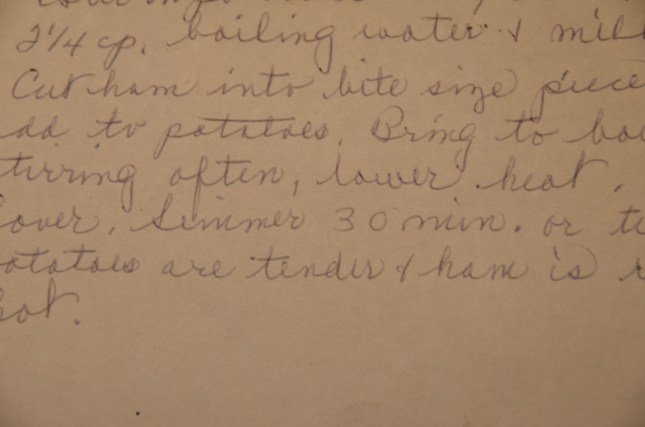 2 1/4 cp. boiling water & mil
Cut ham into bite size piece
dd to potatoes. Bring to bo
tirring often, lower heat.
over. Simmer 30 min. or t
otatoes are tender & ham is
hot.